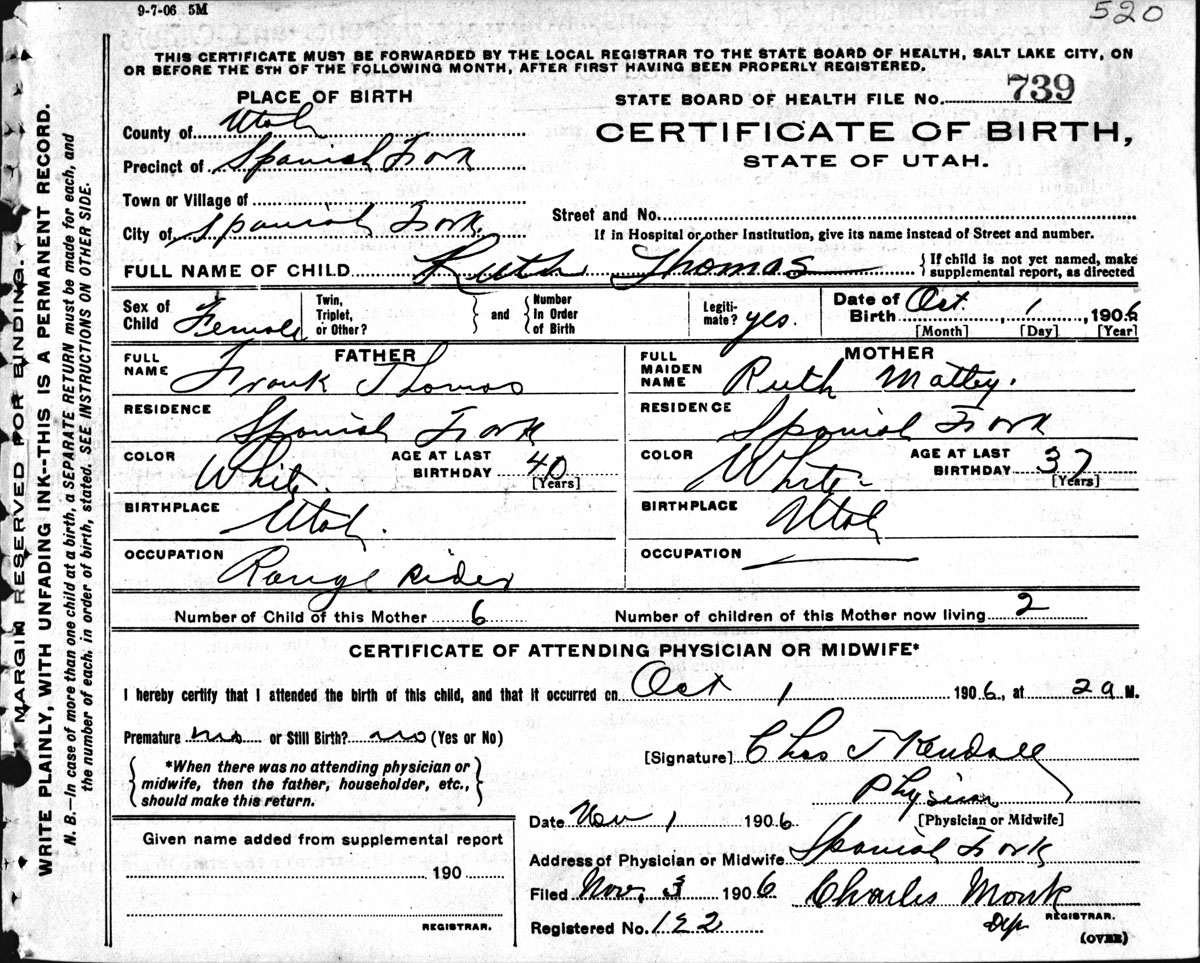 9-7-06 5M
520
THIS CERTIFICATE MUST BE FORWARDED BY THE LOCAL REGISTRAR TO THE STATE BOARD OF HEALTH, SALT LAKE CITY, ON
OR BEFORE THE 5TH OF THE FOLLOWING MONTH, AFTER FIRST HAVING BEEN PROPERLY REGISTERED.
PLACE OF BIRTH
STATE BOARD OF HEALTH FILE No. 739
County of Utah
CERTIFICATE OF BIRTH,
STATE OF UTAH.
Precinct of Spanish Fork
Town or Village of
Street and No.
City of Spanish Fork.
If in Hospital or other Institution, give its name instead of Street and number.
FULL NAME OF CHILD Ruth Thomas
{ If child is not yet named, make
supplemental report, as directed
Sex of Child Female
Twin, Triplet, or Other? } and { Number In Order of Birth
Legiti-mate? yes.
Date of Birth Oct. 1, 1906
[Month] [Day] [Year]
FATHER
FULL NAME Frank Thomas
MOTHER
FULL MAIDEN NAME Ruth Mattey.
RESIDENCE Spanish Fork
RESIDENCE Spanish Fork
COLOR White. AGE AT LAST BIRTHDAY 40 [Years]
COLOR White AGE AT LAST BIRTHDAY 37 [Years]
BIRTHPLACE Utah.
BIRTHPLACE Utah
OCCUPATION Range rider
OCCUPATION
Number of Child of this Mother 6
Number of children of this Mother now living 2
CERTIFICATE OF ATTENDING PHYSICIAN OR MIDWIFE*
I hereby certify that I attended the birth of this child, and that it occurred on Oct 1 1906, at 2 a M.
Premature no or Still Birth? no (Yes or No)
{ *When there was no attending physician or
midwife, then the father, householder, etc.,
should make this return. }
[Signature] Chas J Kendall
Physician
[Physician or Midwife]
Date Nov 1 1906
Address of Physician or Midwife Spanish Fork
Filed Nov. 3 1906 Charles Monk
Dep REGISTRAR.
Registered No. 122
(OVER)
Given name added from supplemental report
190
REGISTRAR.
MARGIN RESERVED FOR BINDING.
WRITE PLAINLY, WITH UNFADING INK--THIS IS A PERMANENT RECORD.
N. B.—In case of more than one child at a birth, a SEPARATE RETURN must be made for each, and
the number of each, in order of birth, stated. SEE INSTRUCTIONS ON OTHER SIDE.